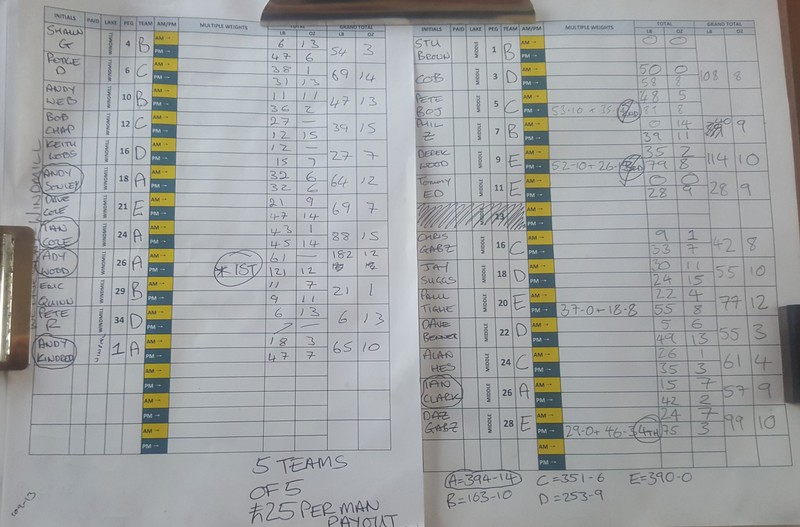 INITIALS PAID LAKE PEG TEAM AM/PM MULTIPLE WEIGHTS TOTAL GRAND TOTAL
LB OZ LB OZ
SHAUN G 4 B AM → 6 13 54 3
PM → 47 6
RODGE D 6 C AM → 38 1 69 14
PM → 31 13
ANDY WEB 10 B AM → 11 11 47 13
PM → 36 2
BOB CHAP 12 C AM → 27 — 39 15
PM → 12 15
KEITH LOBS 16 D AM → 12 — 27 7
PM → 15 7
ANDY 18 A AM → 32 6 64 12
PM → 32 6
DAVE COLE 21 E AM → 21 9 69 7
PM → 47 14
IAN COLE 24 A AM → 43 1 88 15
PM → 45 14
ADY WOOD 26 A AM → 61 — 182 12
* 1ST PM → 121 12
ERIC QUINN 29 B AM → 11 7 21 1
PM → 9 11
PETE R 34 D AM → 6 13 6 13
PM → — —
ANDY KINDRED 1 A AM → 18 3 65 10
PM → 47 7
AM →
PM →
AM →
PM →
AM →
PM →
WINDMILL
5 TEAMS
OF 5
£25 PER MAN
PAYOUT
INITIALS PAID LAKE PEG TEAM AM/PM MULTIPLE WEIGHTS TOTAL GRAND TOTAL
LB OZ LB OZ
STU BROWN MIDDLE 1 B AM → 0 0
PM →
COB MIDDLE 3 D AM → 50 0 108 8
PM → 58 8
PETE BOJ MIDDLE 5 C AM → 48 5
PM → 53-10 +
PHIL Z MIDDLE 7 B AM → 0 14 40 9
PM → 39 11
DEREK WOOD MIDDLE 9 E AM → 35 2 114 10
PM → 52-10 + 79 8
TOMMY ED MIDDLE 11 E AM → 0 0 28 9
PM → 28 9
13 AM →
PM →
CHRIS GABZ MIDDLE 16 C AM → 9 1 42 8
PM → 33 7
JAY SUGGS MIDDLE 18 D AM → 30 11 55 10
PM → 24 15
PAUL TIGHE MIDDLE 20 E AM → 22 4 77 12
PM → 37-0 + 18-8 55 8
DAVE MIDDLE 22 D AM → 5 6 55 3
PM → 49 13
ALAN HES MIDDLE 24 C AM → 26 1 61 4
PM → 35 3
IAN CLARK MIDDLE 26 A AM → 15 7 57 9
PM → 42 2
DAZ GABZ MIDDLE 28 E AM → 24 7 99 10
PM → 29-0 + 46-3 4TH 75 3
AM →
PM →
A=394-14 C=351-6 E=390-0
B=163-10 D=253-9